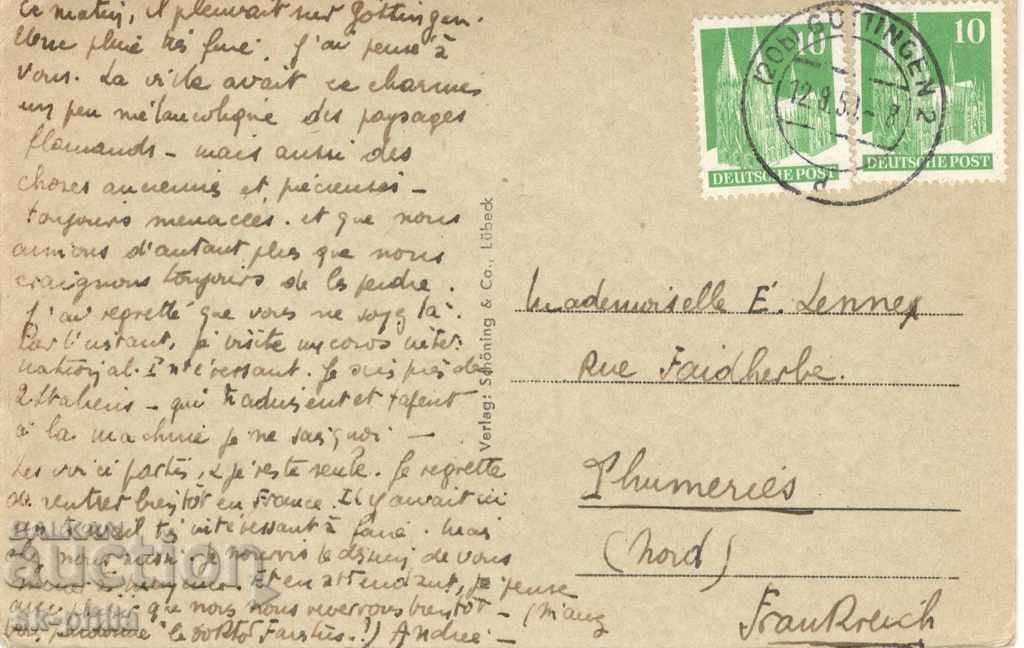 Ce matin, il pleuvait sur Göttingen.
Une pluie très fine. J'ai pensé à
vous. La ville avait ce charme
un peu mélancolique des paysages
flamands – mais aussi des
choses anciennes et précieuses –
toujours menacées. et que nous
aimions d'autant plus que nous
craignons toujours de les perdre.
J'ai regretté que vous ne soyez là.
Par l'instant, je visite un cours inter.
national. Intéressant. Je suis près de
2 Italiens – qui traduisent et tapent
à la machine je ne sais quoi –
Les voici partis, & je reste seule. Je regrette
de rentrer bientôt en France. Il y aurait ici
un travail très intéressant à faire. Mais
je nourris le dessein de vous
Et en attendant, je pense
que nous nous reverrons bientôt – (m'avez
pardonné le Doktor Faustus?) Andrée –
10
10
DEUTSCHE POST
DEUTSCHE POST
(20b) GÖTTINGEN 2
12.9.50 – 8
d
Verlag: Schöning & Co., Lübeck
Mademoiselle E. Lennex
Rue Faidherbe.
Thumeries
(Nord)
Frankreich
BALKAN
auction
sk-philia